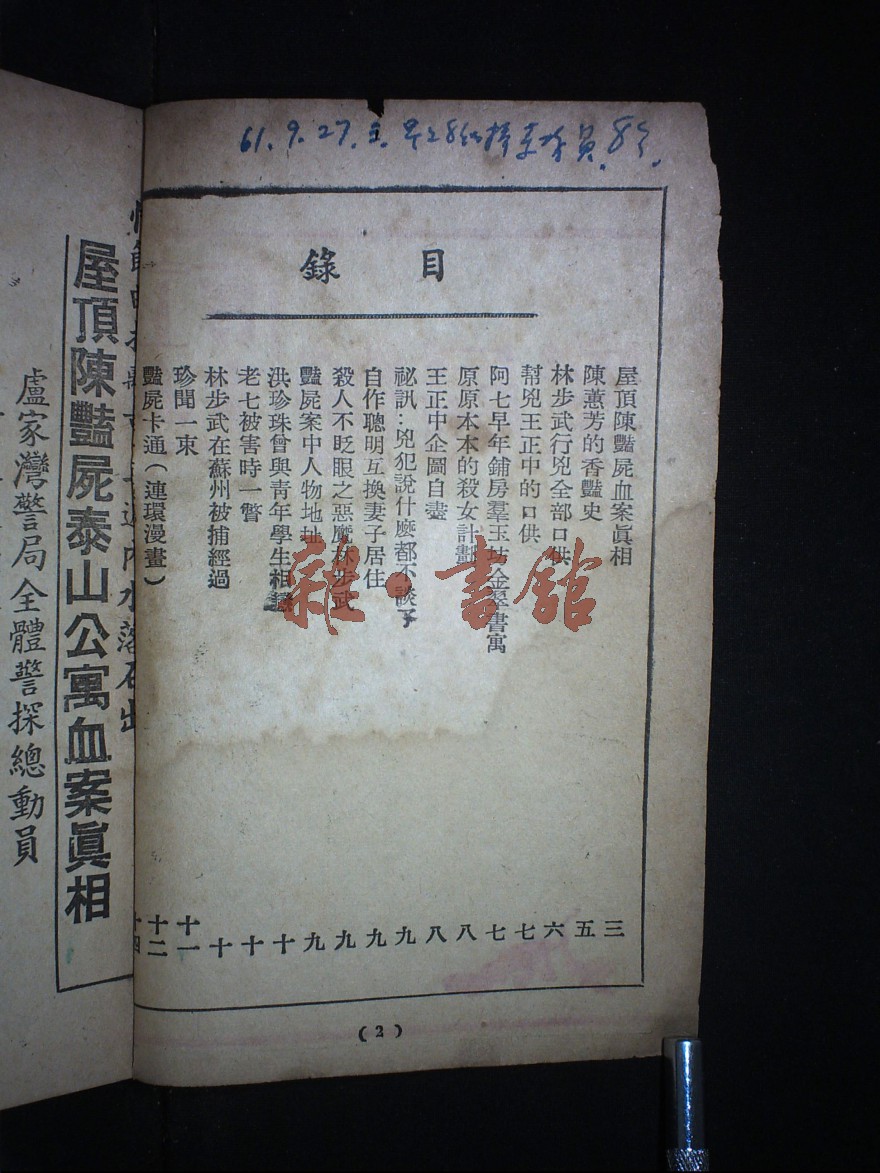 61.9.27.
目錄
屋頂陳豔屍血案眞相 三
陳蕙芳的香豔史 五
林步武行兇全部口供 六
幫兇王正中的口供 七
阿七早年鋪房羣玉坊金翠書寓 七
原原本本的殺女計劃 八
王正中企圖自盡 八
祕訊：兇犯說什麽都不談了 九
自作聰明互換妻子居住 九
殺人不眨眼之惡魔林步武 九
豔屍案中人物地址 九
洪珍珠曾與靑年學生相 十
老七被害時一瞥 十
林步武在蘇州被捕經過 十
珍聞一束 十一
豔屍卡通（連環漫畫） 十二
十四
(2)
雜·書館
內水落石出
屋頂陳豔屍泰山公寓血案眞相
盧家灣警局全體警探總動員